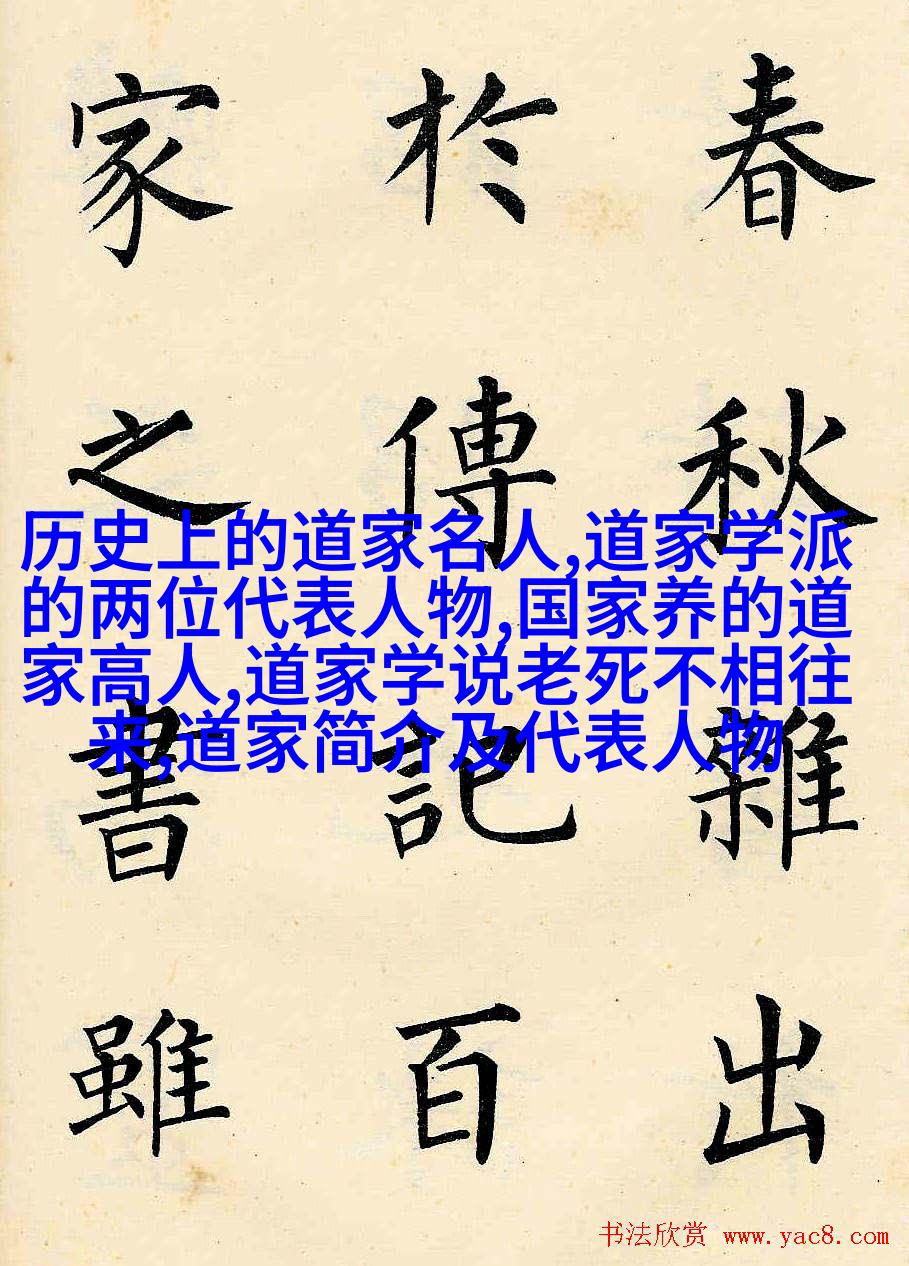 春秋雜出
於傳記百
家之書雖
历史上的道家名人,道家学派
的两位代表人物,国家养的道
家高人,道家学说老死不相往
来,道家简介及代表人物
书法欣赏 www.yac8.com